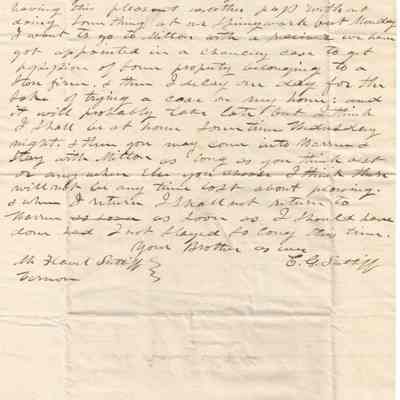 having this pleasant weather pass without
doing something at our Spring work but Monday
I want to go to Milton with a we have
got appointed in a chancery case to get
possession of some property belonging to a
firm. & then I delay one day for the
sake of trying a case on my home: and
it will probably take late but I think
I shall be at home some time Wednesday
night. & then you may come into Warren &
stay with Milton as long as you think best
or any where else you I think there
will not be any time lost about plowing.
& when I return I shall not return to
Warren as soon as soon as I should have
done had I not stayed so long this time.
Your Brother as ever
Mr Flavel Sutliff } C. G. Sutliff
Vernon